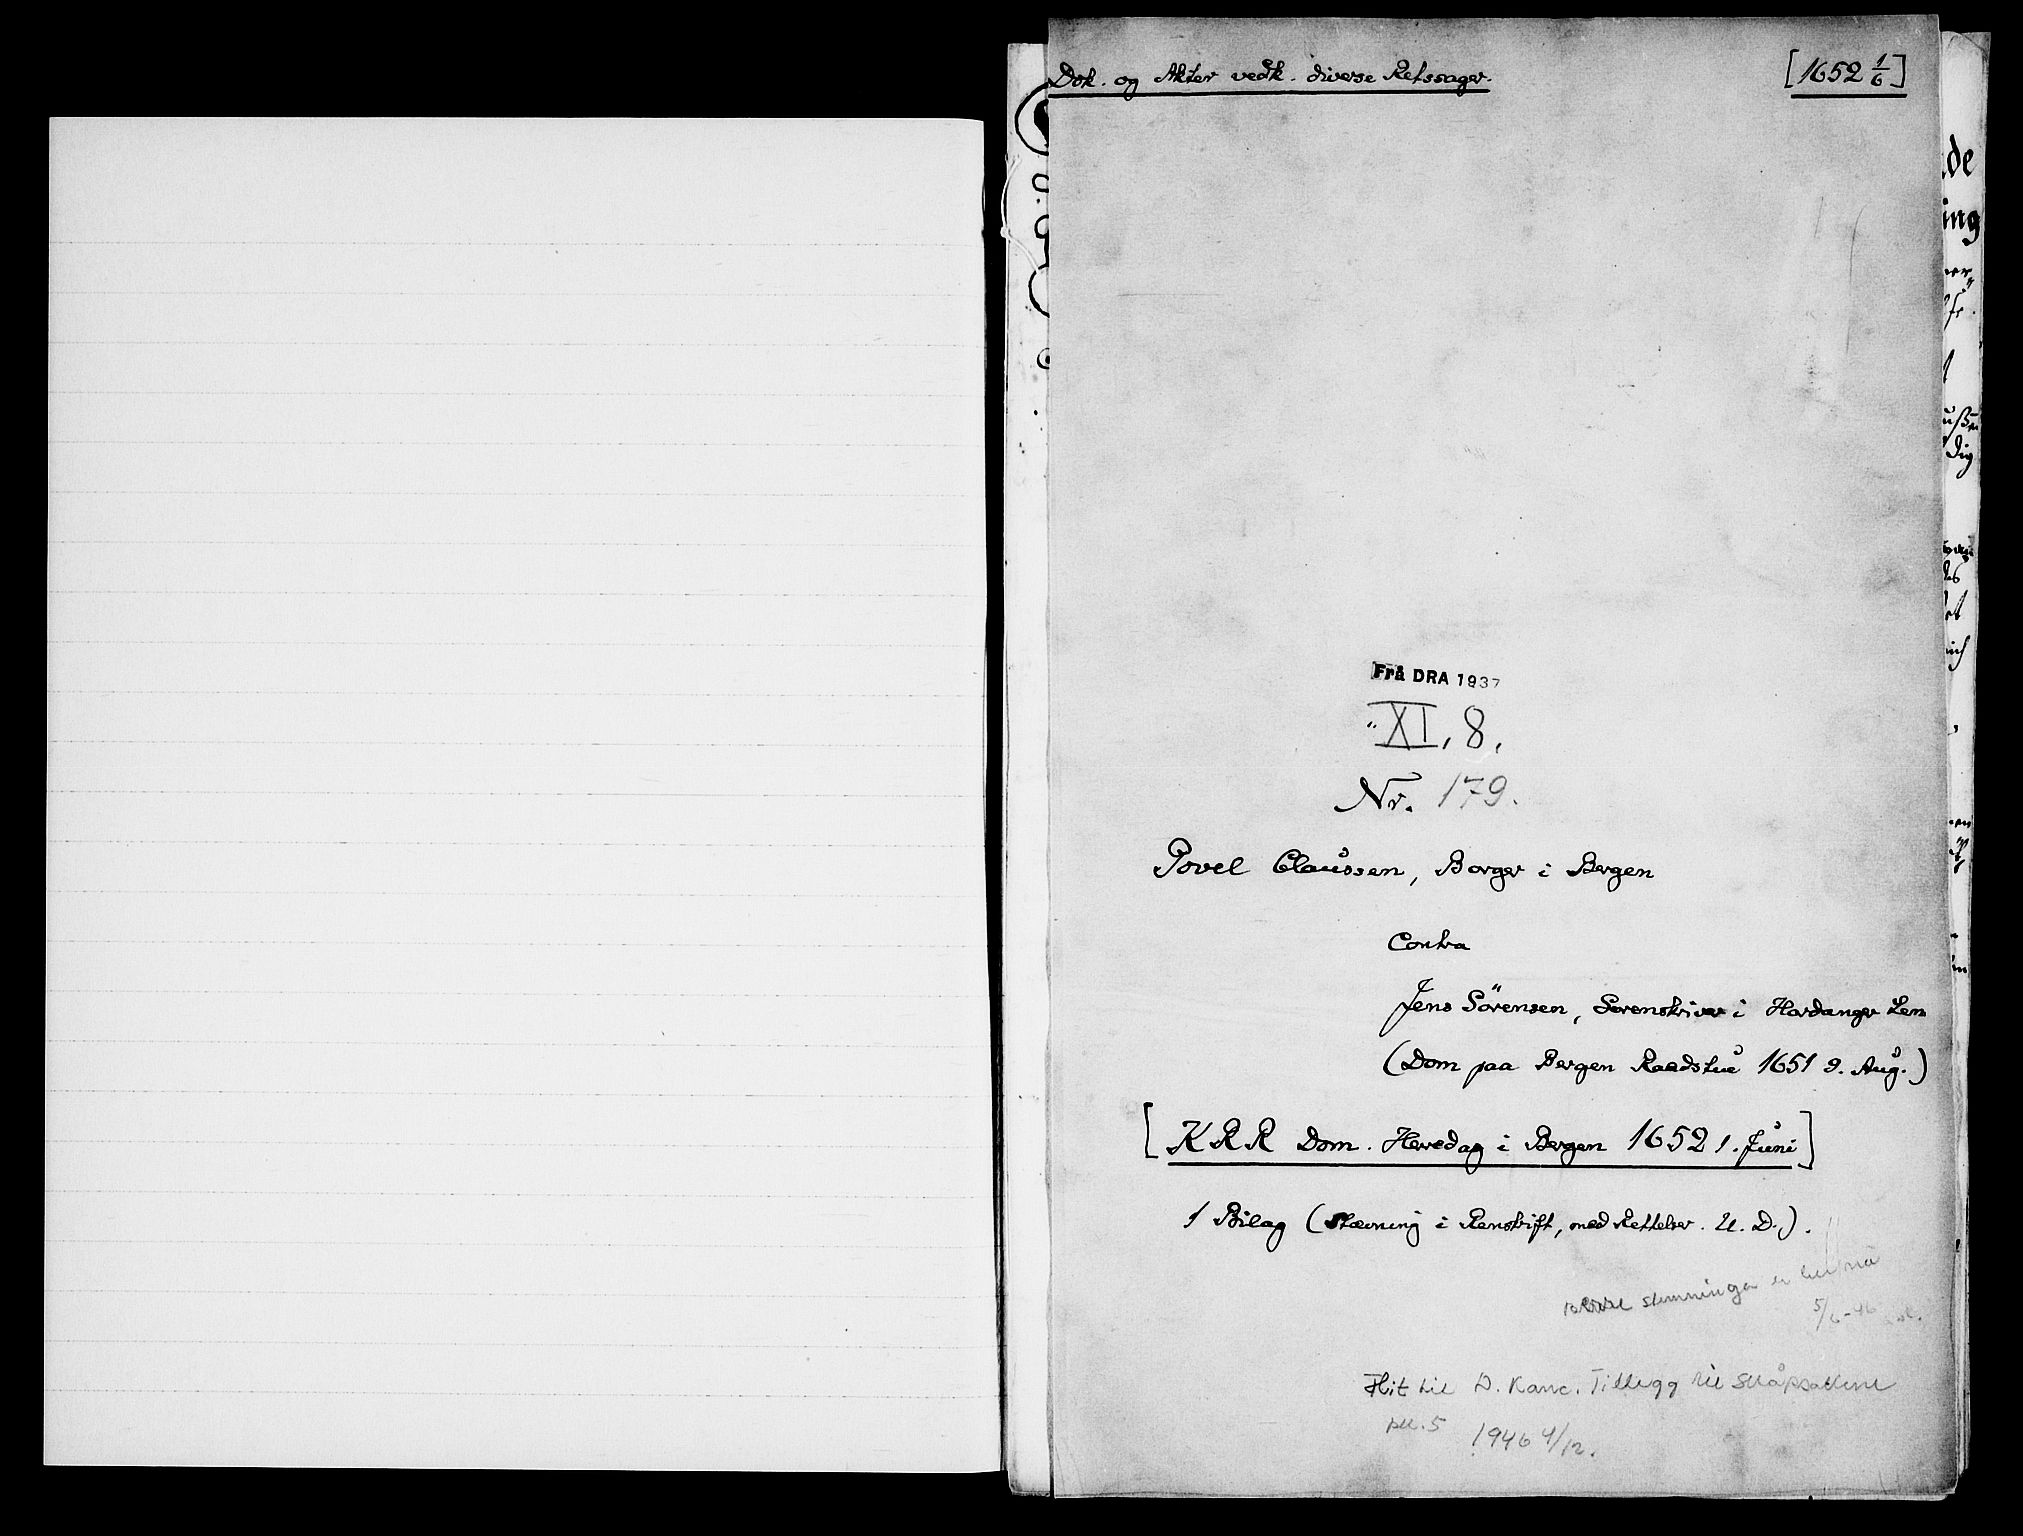 Dok. og Akter vedk. diverse Retssager.
[1652 1/6]
Frå DRA 1937
"XI, 8,
Nr. 179.
Povel Claussen, Borger i Bergen
Contra
Jens Sörensen, Sorenskriver i Hardanger Len
(Dom paa Bergen Raadstue 1651 9. Aug.)
[KRR Dom. Herredag i Bergen 1652 1. Juni]
1 Bilag (Stævning i Renskrift, med Rettelser. U. D.).
stemninga er
5/6-46
Hit til D. Kanc. Tillegg til Skåpsakene
pk. 5
1946 4/12.